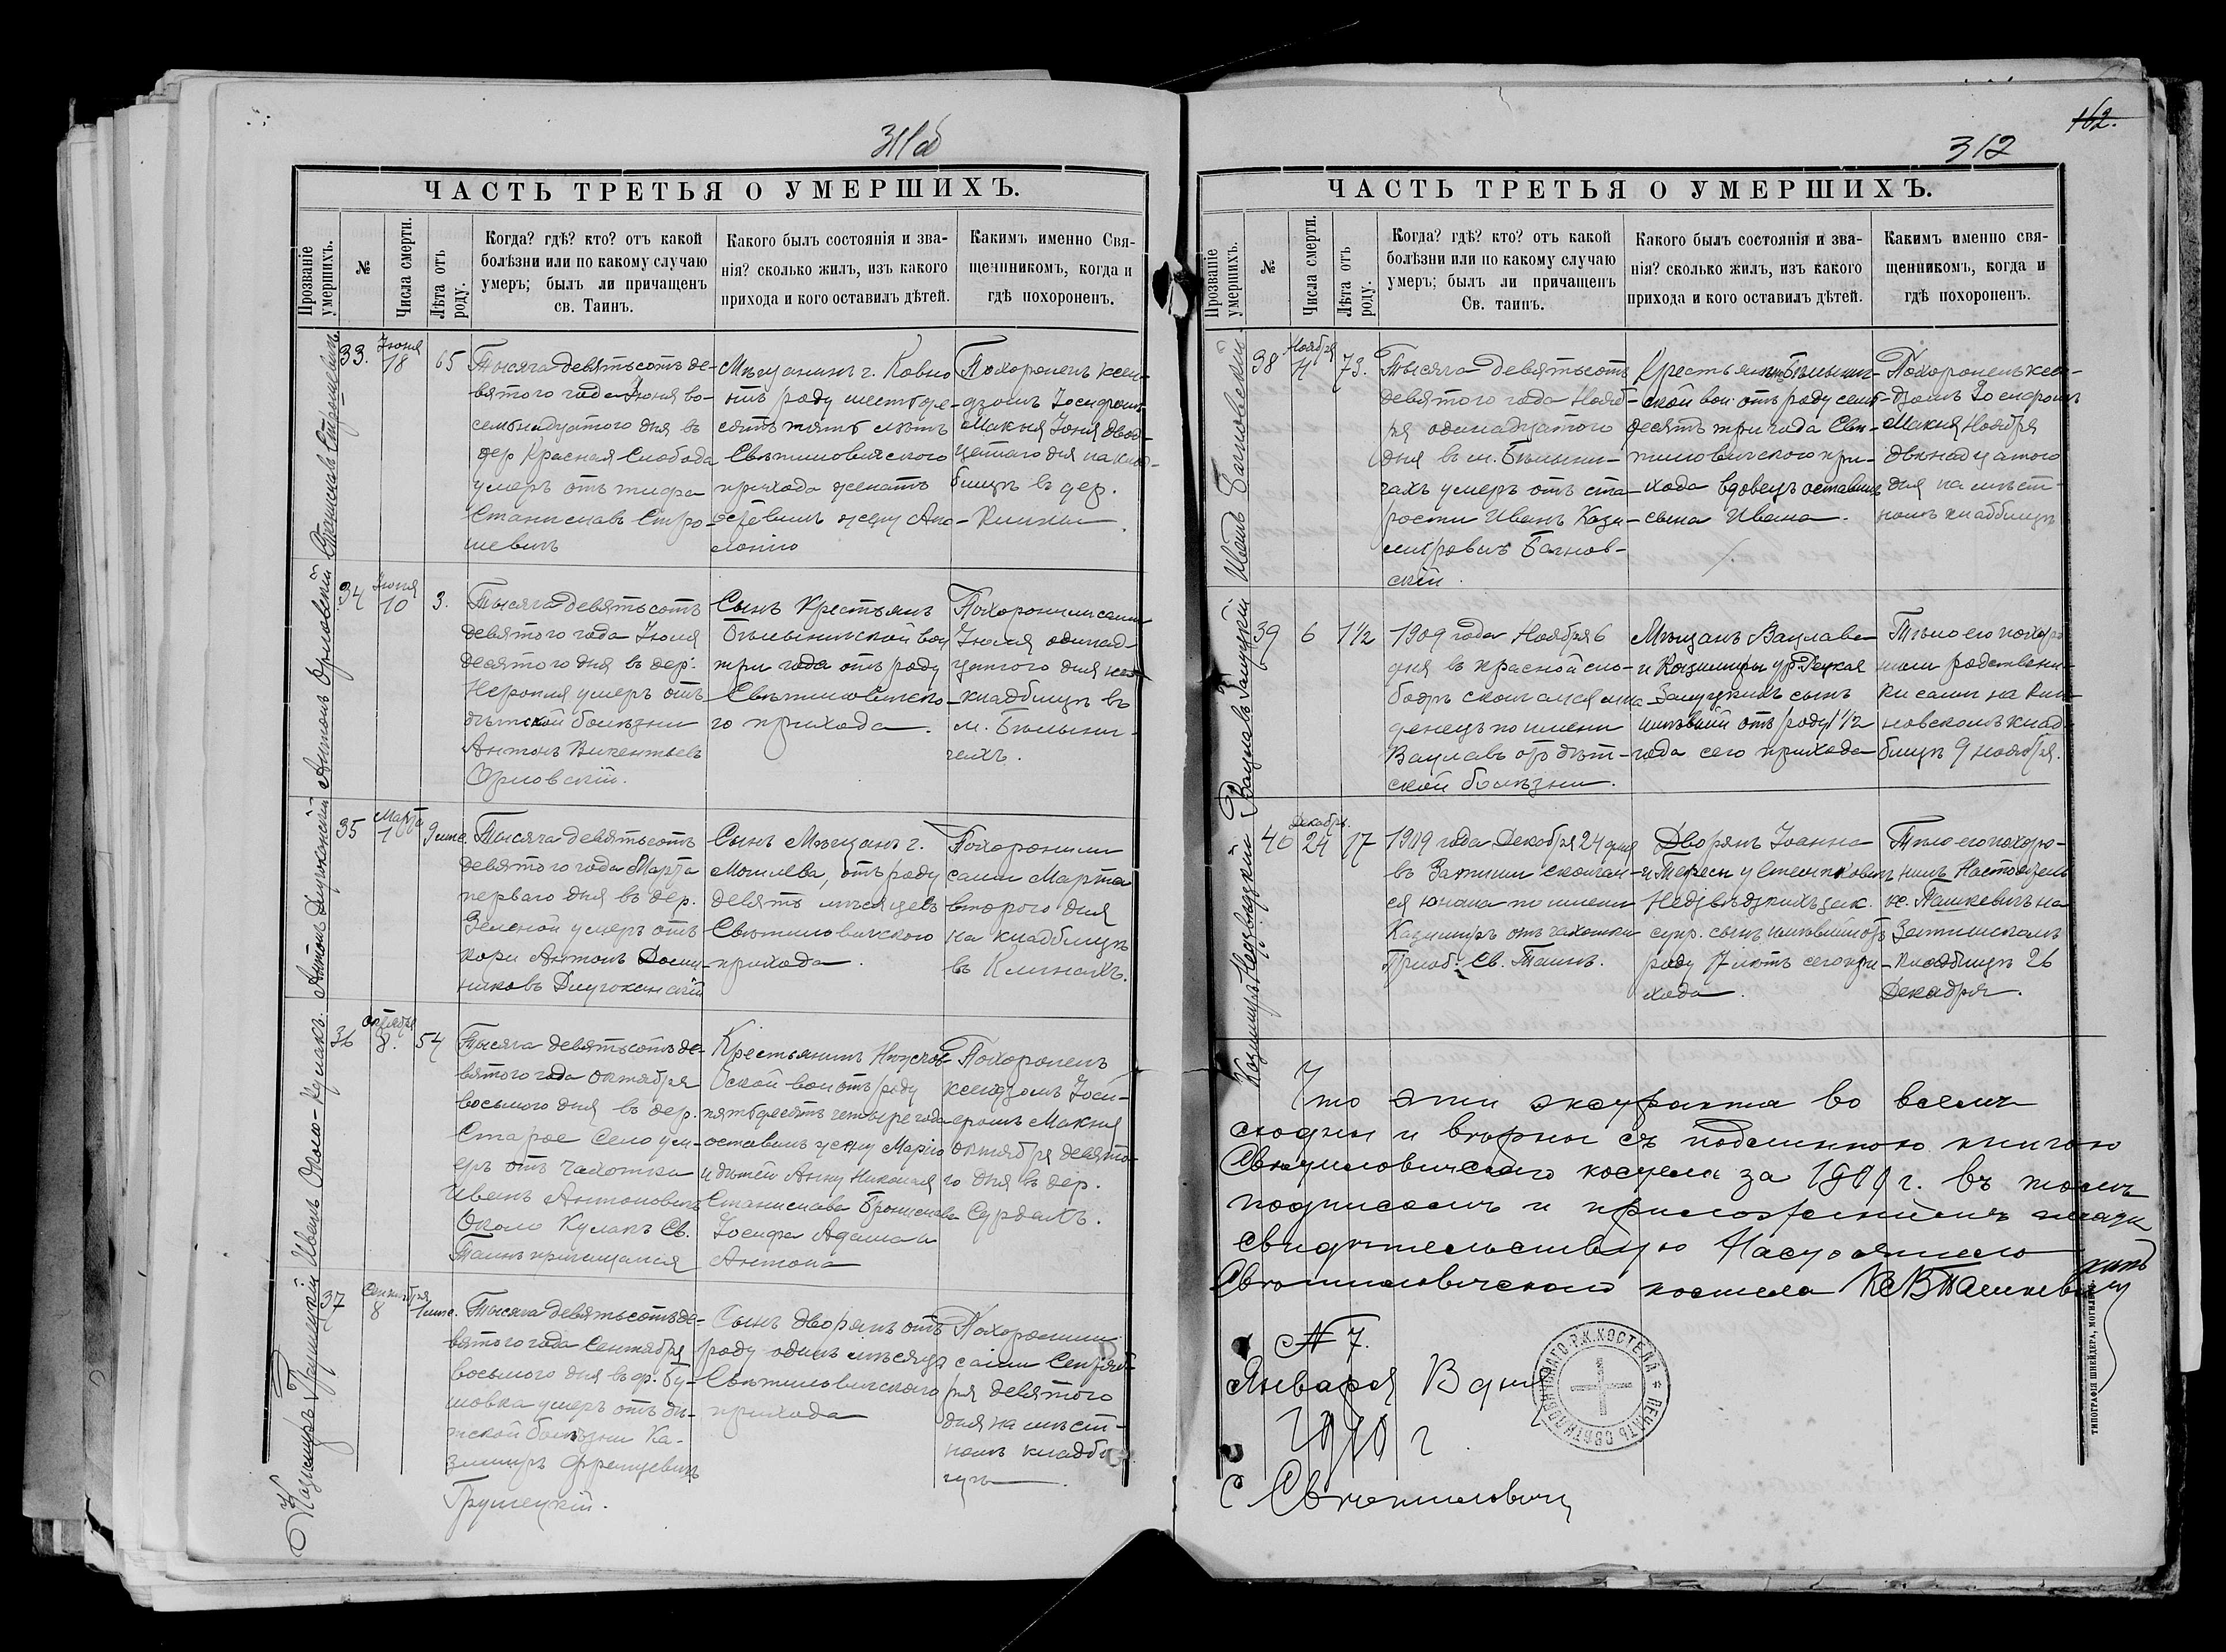 311об
ЧАСТЬ ТРЕТЬЯ О УМЕРШИХЪ.
Прозваніе умершихъ.
№
Числа смерти.
Лѣта отъ роду.
Когда? гдѣ? кто? отъ какой
болѣзни или по какому случаю
умеръ; былъ ли причащенъ
св. Таинъ.
Какого былъ состоянія и зва-
нія? сколько жилъ, изъ какого
прихода и кого оставилъ дѣтей.
Какимъ именно Свя-
щенникомъ, когда и
гдѣ похороненъ.
33.
Іюня
18
65
Тысяча девятьсотъ де-
вятого года Іюня во-
семьнадцатого дня въ
дер Красная Слобода
умеръ отъ тифа
Станиславъ
Мѣщанинъ г. Ковно
отъ роду шестьде-
сятъ пять лѣтъ
Свѣтиловичского
прихода женатъ
оставилъ жену Апо-
лонію
Похороненъ ксен-
дзомъ Іосифомъ
Макня Іюня двад-
цатаго дня на клад-
бищѣ въ дер.
Клины.
34
Іюля
10
3.
Антонъ Орловскій
Тысяча девятьсотъ
девятого года Іюля
десятого дня въ дер.
Неропля умеръ отъ
дѣтской болѣзни
Антонъ Викентьевъ
Орловскій.
Сынъ Крестьянъ
Бѣлыничской вол
три года отъ роду
Свѣтиловичско-
го прихода.
Похоронили сами
Іюля одинад-
цатого дня на
кладбищѣ въ
м. Бѣлыни-
чахъ.
35
Марта
1
9 мѣс.
Тысяча девятьсотъ
девятого года Марта
перваго дня въ дер.
Зеленой умеръ отъ
кори Антонъ Доми-
никовъ Длугоканскій
Сынъ Мѣщанъ г.
Могилева, отъ роду
девять мѣсяцевъ
Свѣтиловичского
прихода.
Похоронили
сами Марта
второго дня
на кладбищѣ
въ Клинахъ.
36
Октября
8.
54
Тысяча девятьсотъ де-
вятого года Октября
восьмого дня въ дер.
Старое Село ум-
еръ отъ чахотки
Иванъ Антоновичъ
Около Кулакъ Св.
Таинъ причащался
Крестьянинъ
ской вол отъ роду
пятьдесятъ четыре года
оставилъ жену Марію
и дѣтей Анну Николая
Станислава Бронислава
Іосифа Адама и
Антона
Похороненъ
ксендзомъ Іоси-
фомъ Макня
Октября девято-
го дня въ дер.
Сурдахъ.
37
Сентября
8
1 мѣс.
Казимиръ Грушецкій
Тысяча девятьсотъ де-
вятого года Сентября
восьмого дня въ ф. Бу-
шовка умеръ отъ дѣ-
тской болѣзни Ка-
зимиръ Францевичъ
Грушецкій.
Сынъ дворянъ отъ
роду одинъ мѣсяцъ
Свѣтиловичского
прихода
Похоронили
сами Сентяб-
ря девятого
дня на мѣст-
номъ кладби-
щѣ.
162.
312
ЧАСТЬ ТРЕТЬЯ О УМЕРШИХЪ.
Прозваніе умершихъ.
№
Числа смерти.
Лѣта отъ роду.
Когда? гдѣ? кто? отъ какой
болѣзни или по какому случаю
умеръ; былъ ли причащенъ
Св. таинъ.
Какого былъ состоянія и зва-
нія? сколько жилъ, изъ какого
прихода и кого оставилъ дѣтей.
Какимъ именно свя-
щенникомъ, когда и
гдѣ похороненъ.
38
Ноября
11
73.
Тысяча девятьсотъ
девятого года Нояб-
ря одинадцатого
дня въ м. Бѣлыни-
чахъ умеръ отъ ста-
рости Иванъ Кази-
мировичъ Багнов-
скій.
Крестьянинъ Бѣлынич-
ской вол. отъ роду семь-
десятъ три года Свѣ-
тиловичского при-
хода вдовецъ оставилъ
сына Ивана.
Похороненъ ксен-
дзомъ Іосифомъ
Макня Ноября
двѣнадцатого
дня на мѣст-
номъ кладбищѣ
39
6
1½
1909 года Ноября 6
дня въ красной сло-
бодѣ скончался мла-
денецъ по имени
Вацлавъ отъ дѣт-
ской болѣзни.
Мѣщанъ Вацлава
и Казимиры ур. Рецкая
Залуцкихъ сынъ
имѣвшій отъ роду 1½
года сего прихода
Тѣло его похоро
нили родственни-
ки сами на Кли-
новскомъ клад-
бищѣ 9 ноября.
40
Декабрь
24
17
1909 года Декабря 24 дня
въ Затишьи скончал-
ся юноша по имени
Казимиръ отъ чахотки
Приоб. Св. Таинъ.
Дворянъ Іоанна
и Терезы
Недзвѣдзкихъ зак.
супр. сынъ имѣвшій отъ
роду 17 лѣтъ сего при-
хода.
Тѣло его похоро-
нилъ Настоятель
кс. Пашкевичъ на
Затишскомъ
кладбищѣ 26
Декабря.
Что эти экстракта во всемъ
сходны и вѣрны съ подлинною книгою
Свѣтиловичскаго костела за 1909 г. въ томъ
подписомъ и приложеніемъ печати
свидѣтельствую Настоятель
Свѣтиловичскаго костела Кс В Пашкевичъ
№ 7.
Января 3 дня
1910 г.
с Свѣтиловичи
ТИПОГРАФІЯ ШНЕЙДЕРА, МОГИЛЕВ.